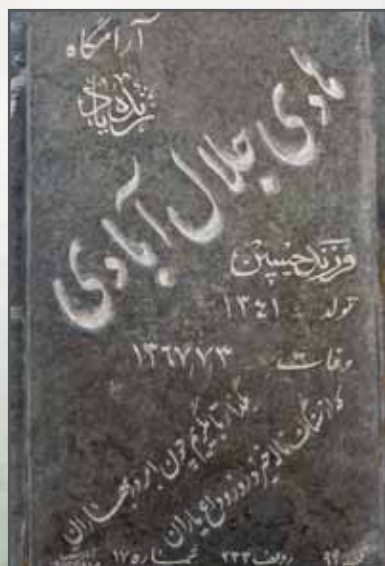 آرامگاه
زنده یاد
هادی جلال آبادی
فرزند حسین
تولد ۱۳۴۱
وفات ۱۳۶۷٫۷۳
بگذار تا بگریم چون ابر در بهاران
کز سنگ ناله خیزد روز وداع یاران
ردیف ۲۲۳ شماره ۱۷۵